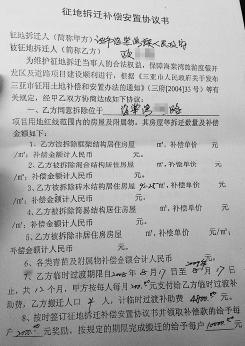 征地拆迁补偿安置协议书
征地拆迁人（简称甲方）
被征地拆迁人（简称乙方）
为维护征地拆迁当事人的合法权益，保障海棠湾旅游度假开
发区及道路项目建设顺利进行，根据《三亚市人民政府关于发布
三亚市征用土地补偿和安置办法的通知》（三府[2004]35号）等有
关规定，经甲乙双方协商达成如下协议：
一、乙方同意拆除位于 路
项目用地红线范围内的房屋及附属物。其房屋等拆迁数量及补偿
金额如下：
1、乙方被拆除框架结构居住房屋 ㎡，补偿单价 元/
㎡，补偿金额计人民币 元。
2、乙方被拆除混合结构居住房屋 ㎡，补偿单价 元/
㎡，补偿金额计人民币 元。
3、乙方被拆除砖木结构居住房屋 ㎡，补偿单价 元/
㎡，补偿金额计人民币 元。
4、乙方被拆除简易结构居住房屋 ㎡，补偿单价 元
/㎡，补偿金额计人民币 元。
5、乙方被拆除非居住房房屋 ㎡，补偿单价 元/㎡，
补偿金额计人民币 元。
6、各类青苗及附属物补偿金额合计人民币 元。
7、乙方临时过渡期限自 年8月17日至 年8月17日
止，共12个月，甲方按每人每月200元支付给乙方临时过渡补
助费，乙方搬迁人口 4 人，计临时过渡补助费 元。
8、按时签订征地拆迁补偿安置协议书并领取补偿款的给予每
户 元奖励，按规定的期限完成搬迁的给予每户 元